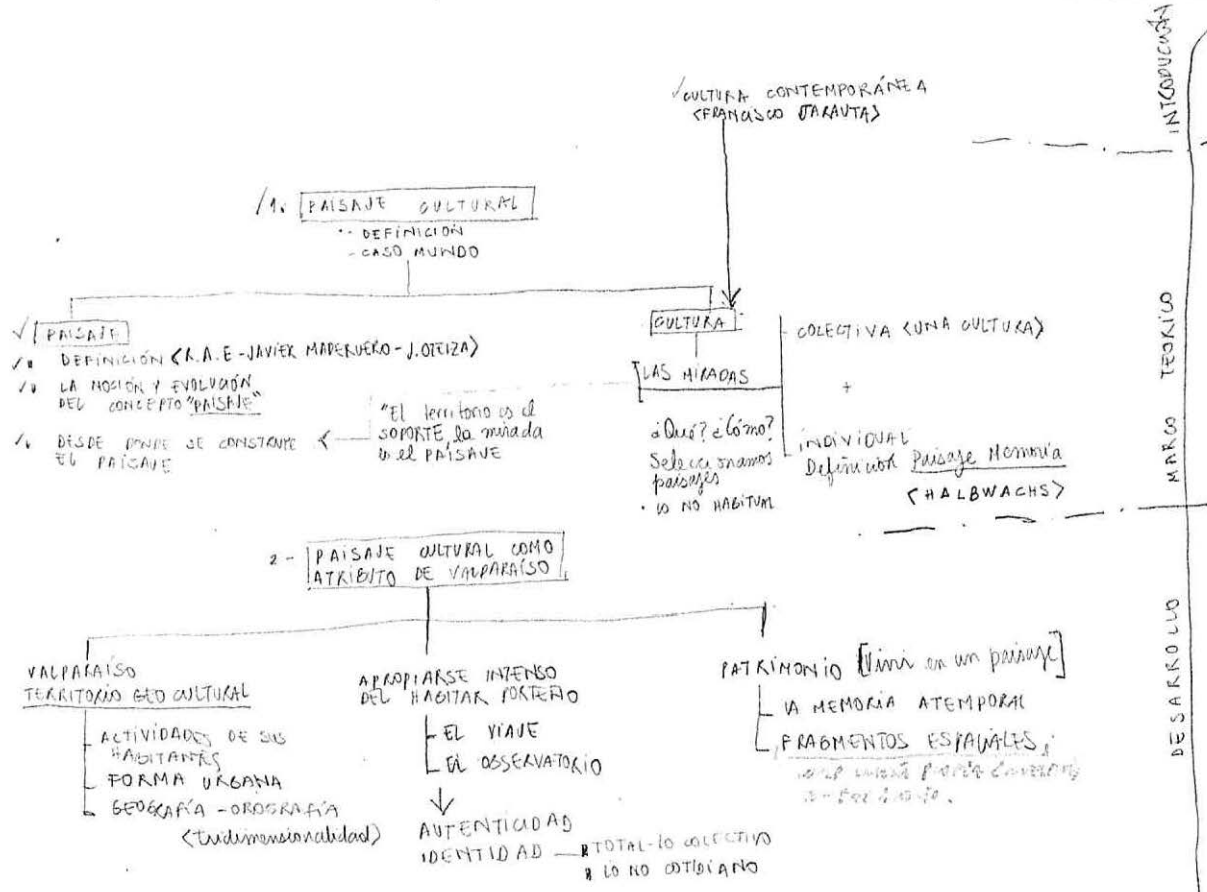 INTRODUCCIÓN
✓CULTURA CONTEMPORÁNEA
<FRANCISCO JARAUTA>
/1. PAISAJE CULTURAL
- DEFINICIÓN
- CASO MUNDO
✓ PAISAJE
/• DEFINICIÓN <R.A.E - JAVIER MADERUERO - J.OTEIZA>
/• LA NOCIÓN Y EVOLUCIÓN
DEL CONCEPTO "PAISAJE"
/• DESDE DONDE SE CONSTRUYE
EL PAISAJE
"El territorio es el
SOPORTE, la mirada
es el PAISAJE
CULTURA
LAS MIRADAS
¿Qué? ¿Cómo?
Seleccionamos
paisajes
• LO NO HABITUAL
COLECTIVA <UNA CULTURA>
+
INDIVIDUAL
Definición Paisaje Memoria
<HALBWACHS>
MARCO TEÓRICO
2 - PAISAJE CULTURAL COMO
ATRIBUTO DE VALPARAÍSO
VALPARAÍSO
TERRITORIO GEO CULTURAL
ACTIVIDADES DE SUS
HABITANTES
FORMA URBANA
GEOGRAFÍA - OROGRAFÍA
<tridimensionalidad>
APROPIARSE INTENSO
DEL HABITAR PORTEÑO
EL VIAJE
EL OBSERVATORIO
AUTENTICIDAD
IDENTIDAD
TOTAL - LO COLECTIVO
LO NO COTIDIANO
PATRIMONIO [Vivir en un paisaje]
LA MEMORIA ATEMPORAL
FRAGMENTOS ESPACIALES
DESARROLLO